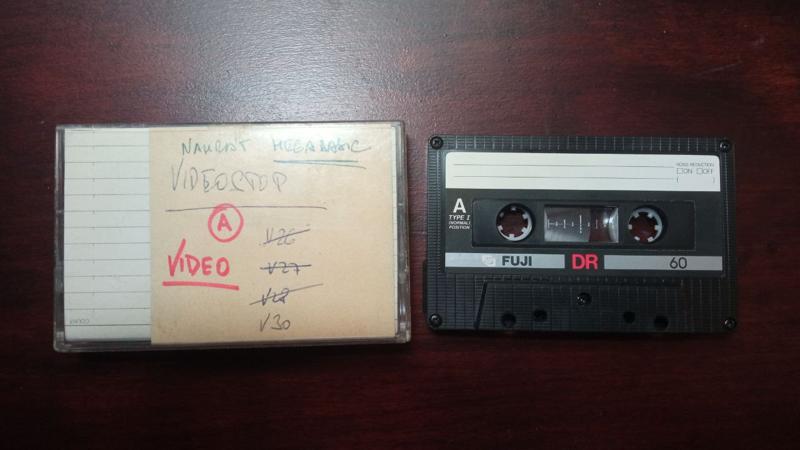 MEGABASIC
VIDEOSTOP
A
VIDEO
V26
V27
V28
V30
COVER
NOISE REDUCTION
☐ON ☐OFF
( )
A
TYPE I
(NORMAL)
POSITION
FUJI
DR
60